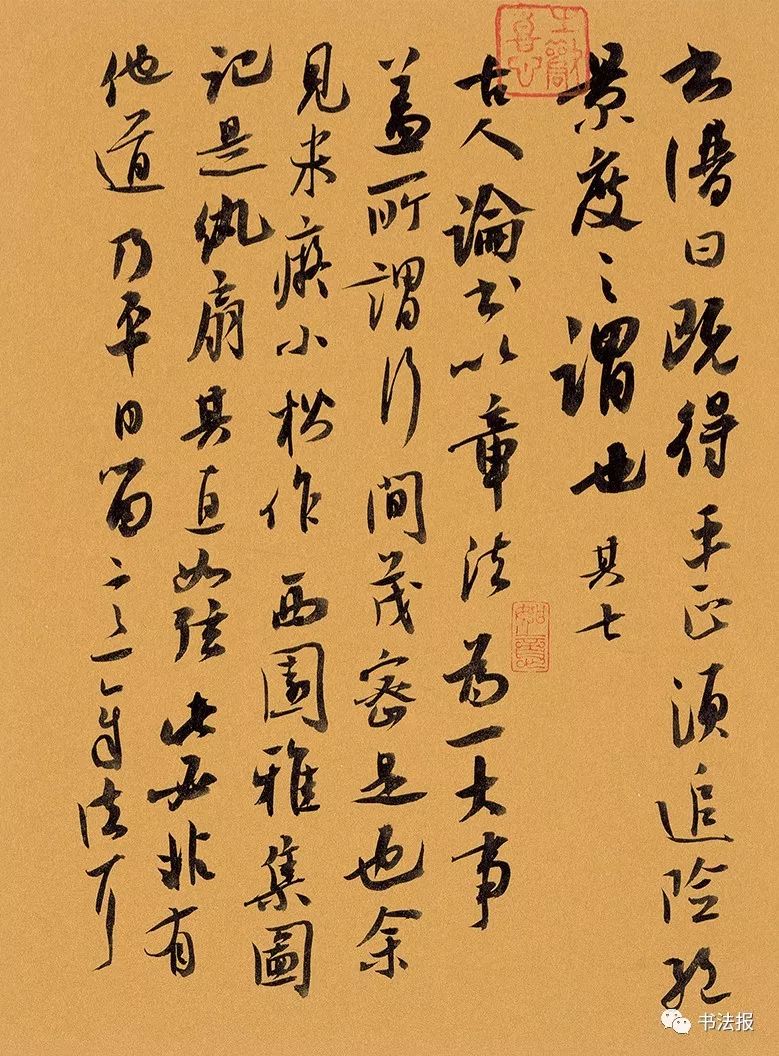 書譜曰既得平正須追險絕
景度之謂也 其七
古人論書以章法為一大事
蓋所謂行間茂密是也余
見米癡小楷作西園雅集圖
記是紈扇其直如弦此必非有
他道乃平日留意章法耳
书法报